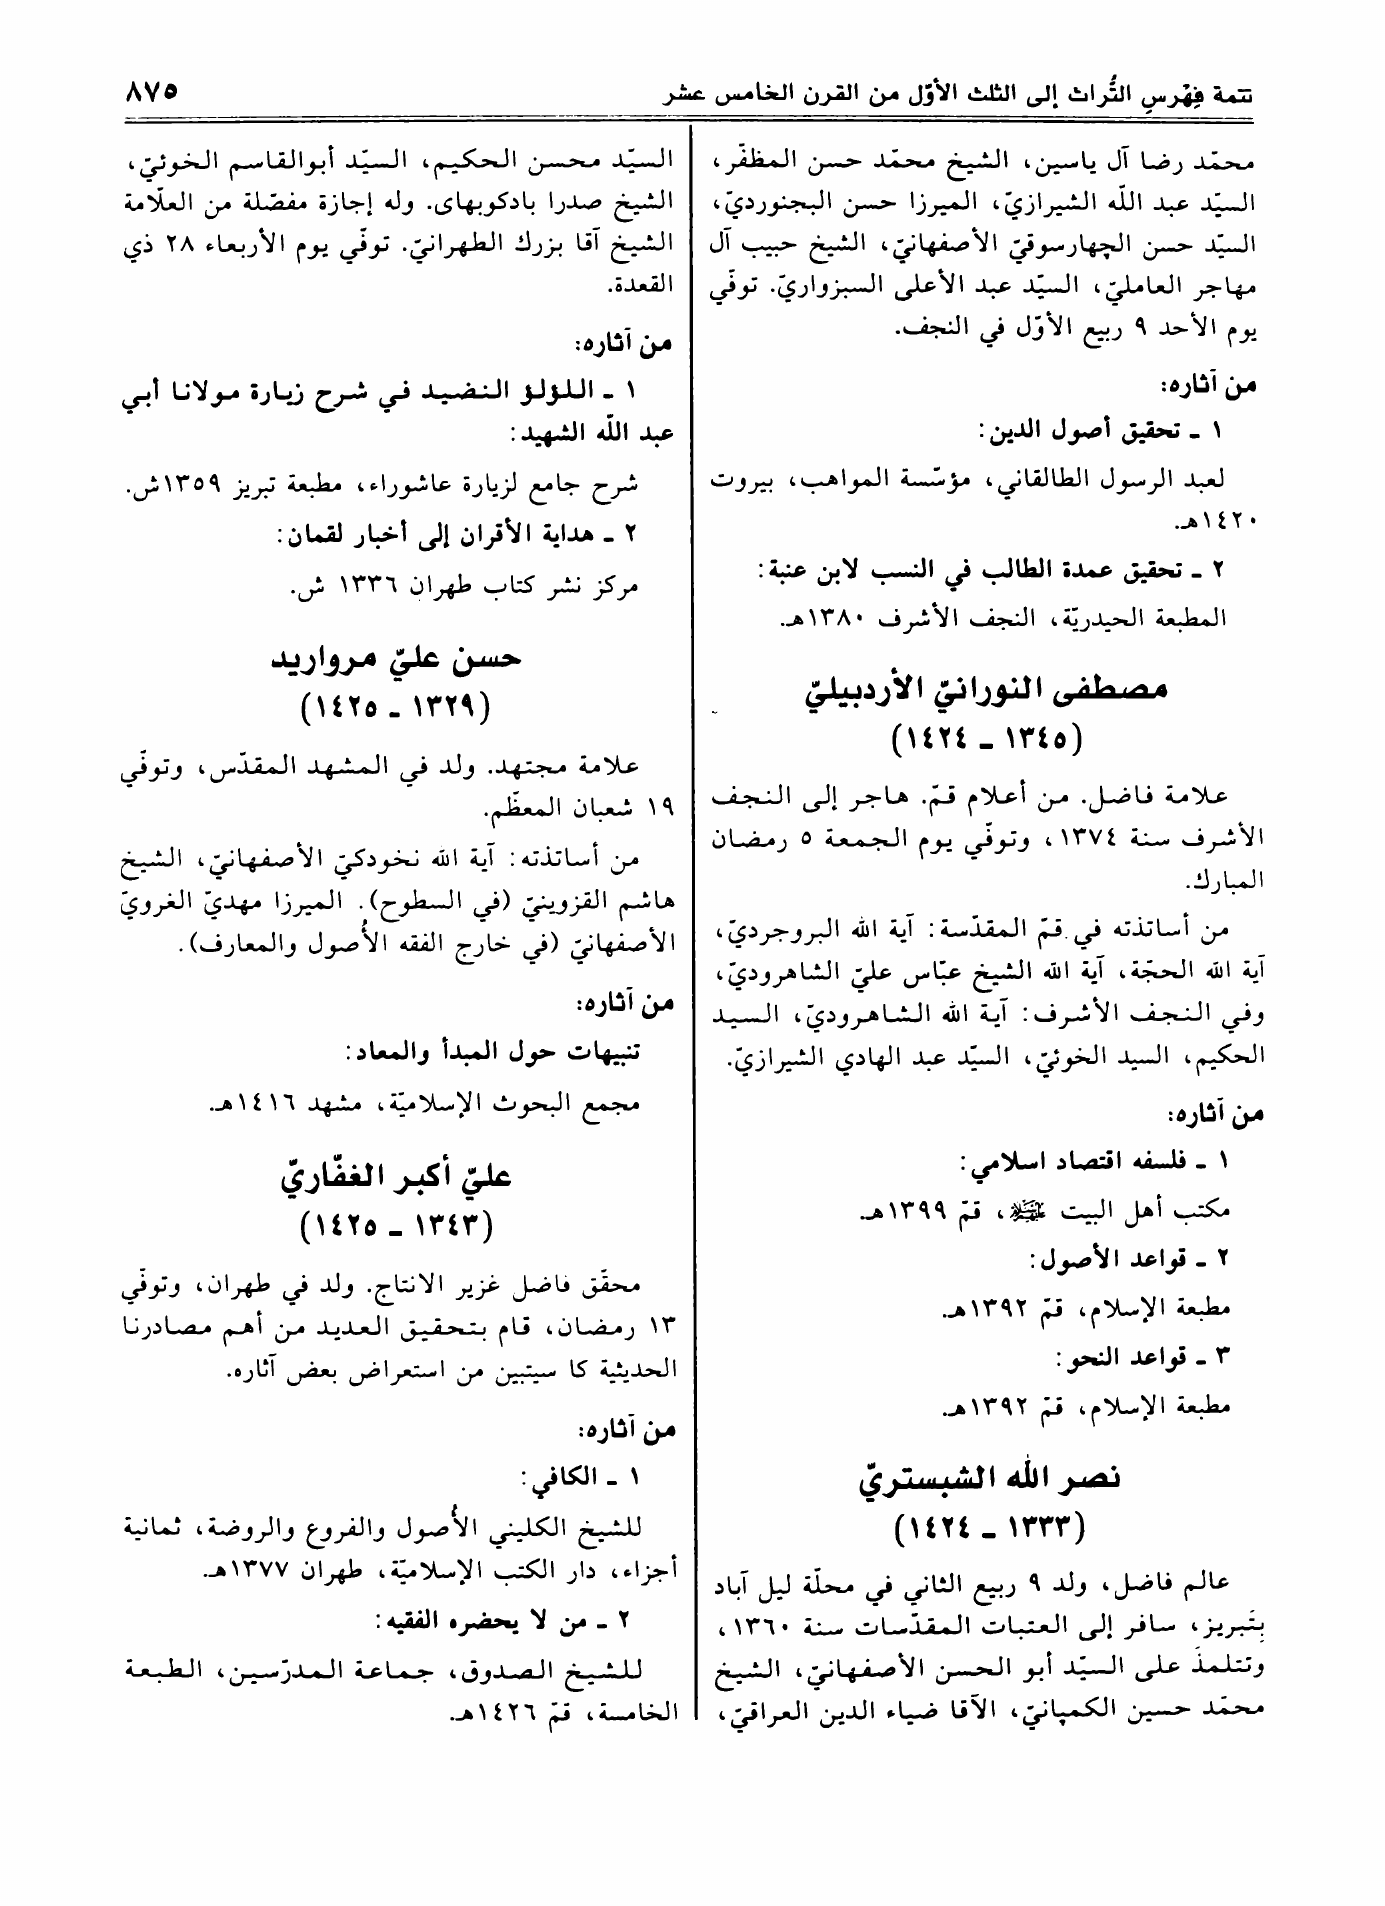 تتمة فِهْرسِ التُّراث إلى الثلث الأوّل من القرن الخامس عشر
٨٧٥
محمّد رضا آل ياسين، الشيخ محمّد حسن المظفّر،
السيّد عبد اللّه الشيرازيّ، الميرزا حسن البجنورديّ،
السيّد حسن الچهارسوقيّ الأصفهانيّ، الشيخ حبيب آل
مهاجر العامليّ، السيّد عبد الأعلى السبزواريّ. توفّي
يوم الأحد ٩ ربيع الأوّل في النجف.
من آثاره:
١ ـ تحقيق أصول الدين:
لعبد الرسول الطالقاني، مؤسّسة المواهب، بيروت
١٤٢٠هـ.
٢ ـ تحقيق عمدة الطالب في النسب لابن عنبة:
المطبعة الحيدريّة، النجف الأشرف ١٣٨٠هـ.
مصطفى النورانيّ الأردبيليّ
(١٣٤٥ ـ ١٤٢٤)
علامة فاضل. من أعلام قمّ. هاجر إلى النجف
الأشرف سنة ١٣٧٤، وتوفّي يوم الجمعة ٥ رمضان
المبارك.
من أساتذته في قمّ المقدّسة: آية الله البروجرديّ،
آية الله الحجّة، آية الله الشيخ عبّاس عليّ الشاهروديّ،
وفي النجف الأشرف: آية الله الشاهروديّ، السيد
الحكيم، السيد الخوئيّ، السيّد عبد الهادي الشيرازيّ.
من آثاره:
١ ـ فلسفه اقتصاد اسلامي:
مكتب أهل البيت ﷺ، قمّ ١٣٩٩هـ.
٢ ـ قواعد الأصول:
مطبعة الإسلام، قمّ ١٣٩٢هـ.
٣ ـ قواعد النحو:
مطبعة الإسلام، قمّ ١٣٩٢هـ.
نصر الله الشبستريّ
(١٣٣٣ ـ ١٤٢٤)
عالم فاضل، ولد ٩ ربيع الثاني في محلّة ليل آباد
بِتَبريز، سافر إلى العتبات المقدّسات سنة ١٣٦٠،
وتتلمذ على السيّد أبو الحسن الأصفهانيّ، الشيخ
محمّد حسين الكمپانيّ، الآقا ضياء الدين العراقيّ،
السيّد محسن الحكيم، السيّد أبوالقاسم الخوئيّ،
الشيخ صدرا بادكوبهاى. وله إجازة مفصّلة من العلّامة
الشيخ آقا بزرك الطهرانيّ. توفّي يوم الأربعاء ٢٨ ذي
القعدة.
من آثاره:
١ ـ اللؤلؤ النضيد في شرح زيارة مولانا أبي
عبد اللّه الشهيد:
شرح جامع لزيارة عاشوراء، مطبعة تبريز ١٣٥٩ش.
٢ ـ هداية الأقران إلى أخبار لقمان:
مركز نشر كتاب طهران ١٣٣٦ ش.
حسن عليّ مرواريد
(١٣٢٩ ـ ١٤٢٥)
علامة مجتهد. ولد في المشهد المقدّس، وتوفّي
١٩ شعبان المعظّم.
من أساتذته: آية الله نخودكيّ الأصفهانيّ، الشيخ
هاشم القزوينيّ (في السطوح). الميرزا مهديّ الغرويّ
الأصفهانيّ (في خارج الفقه الأُصول والمعارف).
من آثاره:
تنبيهات حول المبدأ والمعاد:
مجمع البحوث الإسلاميّة، مشهد ١٤١٦هـ.
عليّ أكبر الغفّاريّ
(١٣٤٣ ـ ١٤٢٥)
محقّق فاضل غزير الانتاج. ولد في طهران، وتوفّي
١٣ رمضان، قام بتحقيق العديد من أهم مصادرنا
الحديثية كا سيتبين من استعراض بعض آثاره.
من آثاره:
١ ـ الكافي:
للشيخ الكليني الأُصول والفروع والروضة، ثمانية
أجزاء، دار الكتب الإسلاميّة، طهران ١٣٧٧هـ.
٢ ـ من لا يحضره الفقيه:
للشيخ الصدوق، جماعة المدرّسين، الطبعة
الخامسة، قمّ ١٤٢٦هـ.